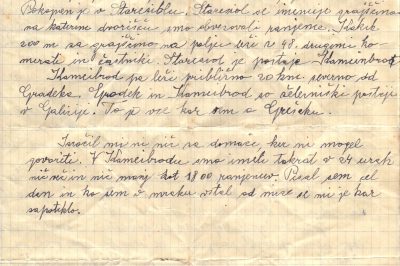 Pokopan je v Starésiólu. Staresiol se imenuje graščina
na katerim dvorišču smo obvezovali ranjence. Kakih
200 m za graščino na polju leži z 48. drugimi ko-
merati in častniki. Staresiol je postaja Kameinbrod
Kameibrod pa leži približno 20 km severno od
Gradeka. Gradek in Kameibrod so železniški postaji
v Galiciji. To je vse kar vem o Grčarku.
Izročil mi ni nič za domače, ker ni mogel
govoriti. V Kameibrodu smo imeli takrat v 24 urah
nič nič in nič manj kot 1800 ranjencev. Pisal sem cel
dan in ko sem v mraku vstal od mize se mi je kar
zapotiklo.